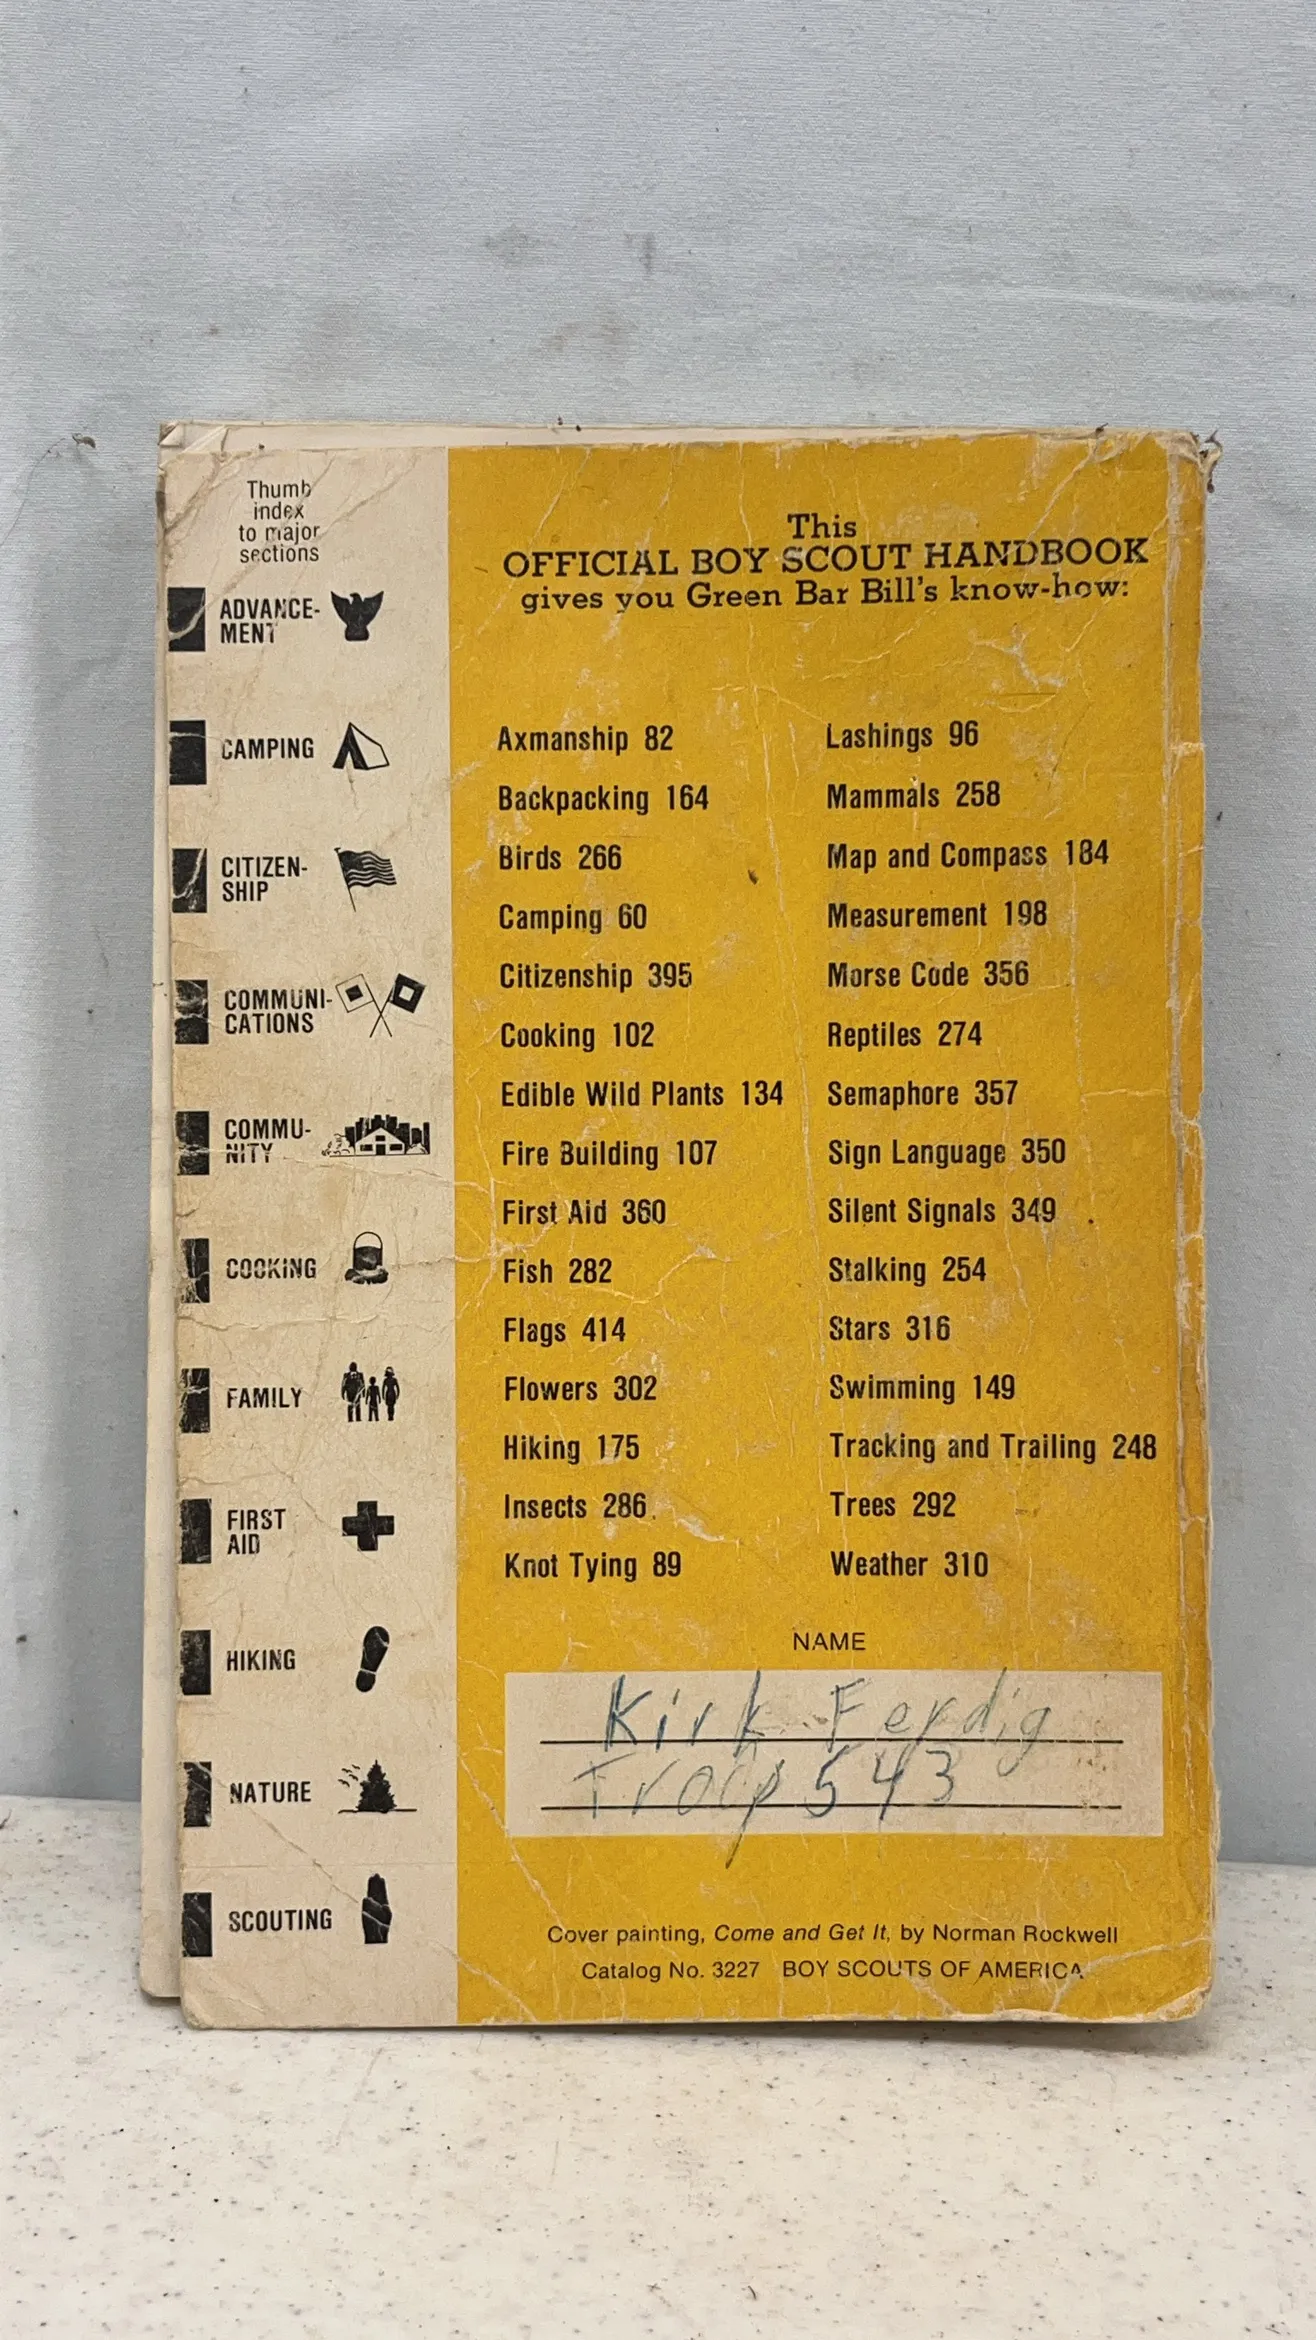 Thumb
index
to major
sections
ADVANCE-
MENT
CAMPING
CITIZEN-
SHIP
COMMUNI-
CATIONS
COMMU-
NITY
COOKING
FAMILY
FIRST
AID
HIKING
NATURE
SCOUTING
This
OFFICIAL BOY SCOUT HANDBOOK
gives you Green Bar Bill's know-how:
Axmanship 82
Backpacking 164
Birds 266
Camping 60
Citizenship 395
Cooking 102
Edible Wild Plants 134
Fire Building 107
First Aid 360
Fish 282
Flags 414
Flowers 302
Hiking 175
Insects 286
Knot Tying 89
Lashings 96
Mammals 258
Map and Compass 184
Measurement 198
Morse Code 356
Reptiles 274
Semaphore 357
Sign Language 350
Silent Signals 349
Stalking 254
Stars 316
Swimming 149
Tracking and Trailing 248
Trees 292
Weather 310
NAME
Kirk Ferdig
Troop 543
Cover painting, Come and Get It, by Norman Rockwell
Catalog No. 3227 BOY SCOUTS OF AMERICA